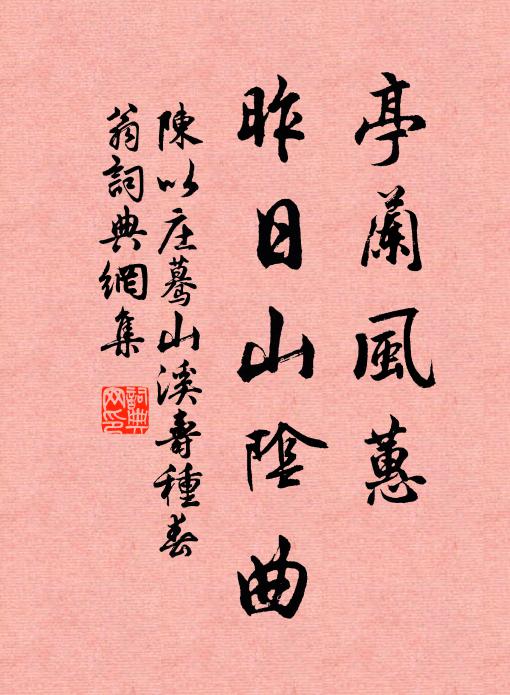 亭蘭風蕙
昨日山陰曲
陳以庄驀山溪壽種春
翁詞典網集
詞典網印